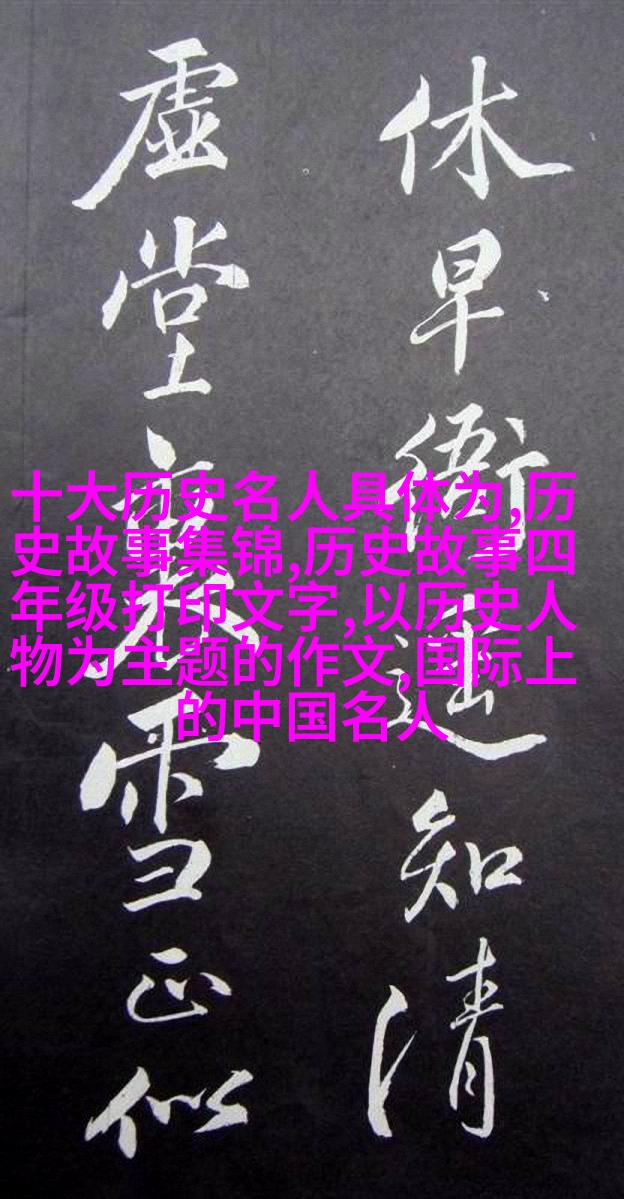 休早衙遙知清
虛堂裏雪正似
十大历史名人具体为,历
史故事集锦,历史故事四
年级打印文字,以历史人
物为主题的作文,国际上
的中国名人